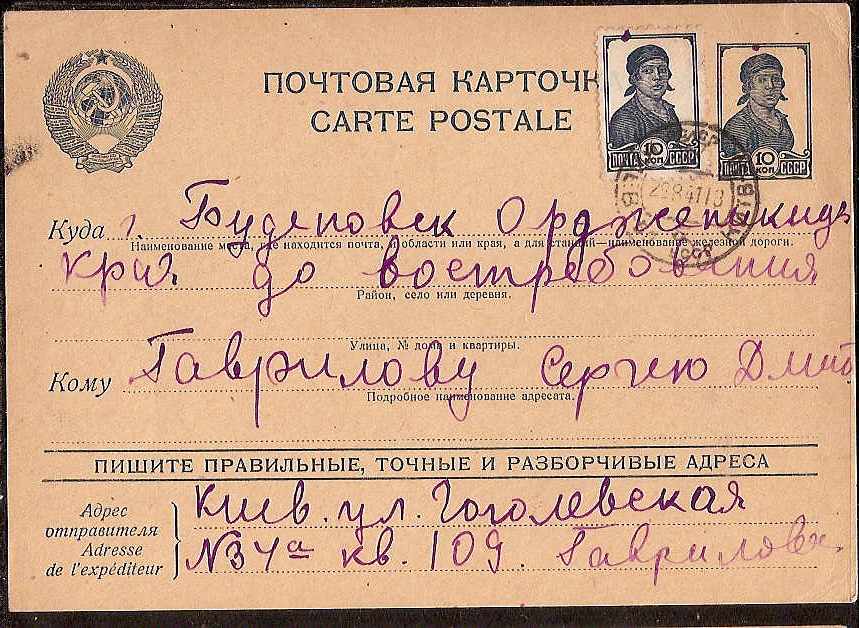 ПОЧТОВАЯ КАРТОЧК
CARTE POSTALE
10 КОП
ПОЧТА СССР
10 КОП
ПОЧТА СССР
Куда г. Буденовск Орджоникидз
Наименование места, где находится почта, и области или края, а для станций—наименование железной дороги.
края до востребования
Район, село или деревня.
Улица, № дома и квартиры.
Кому Гаврилову Сергею Дмит
Подробное наименование адресата.
ПИШИТЕ ПРАВИЛЬНЫЕ, ТОЧНЫЕ И РАЗБОРЧИВЫЕ АДРЕСА
Адрес отправителя
Adresse de l'expéditeur
Киев. ул. Гоголевская
№34а кв. 109. Гаврилова